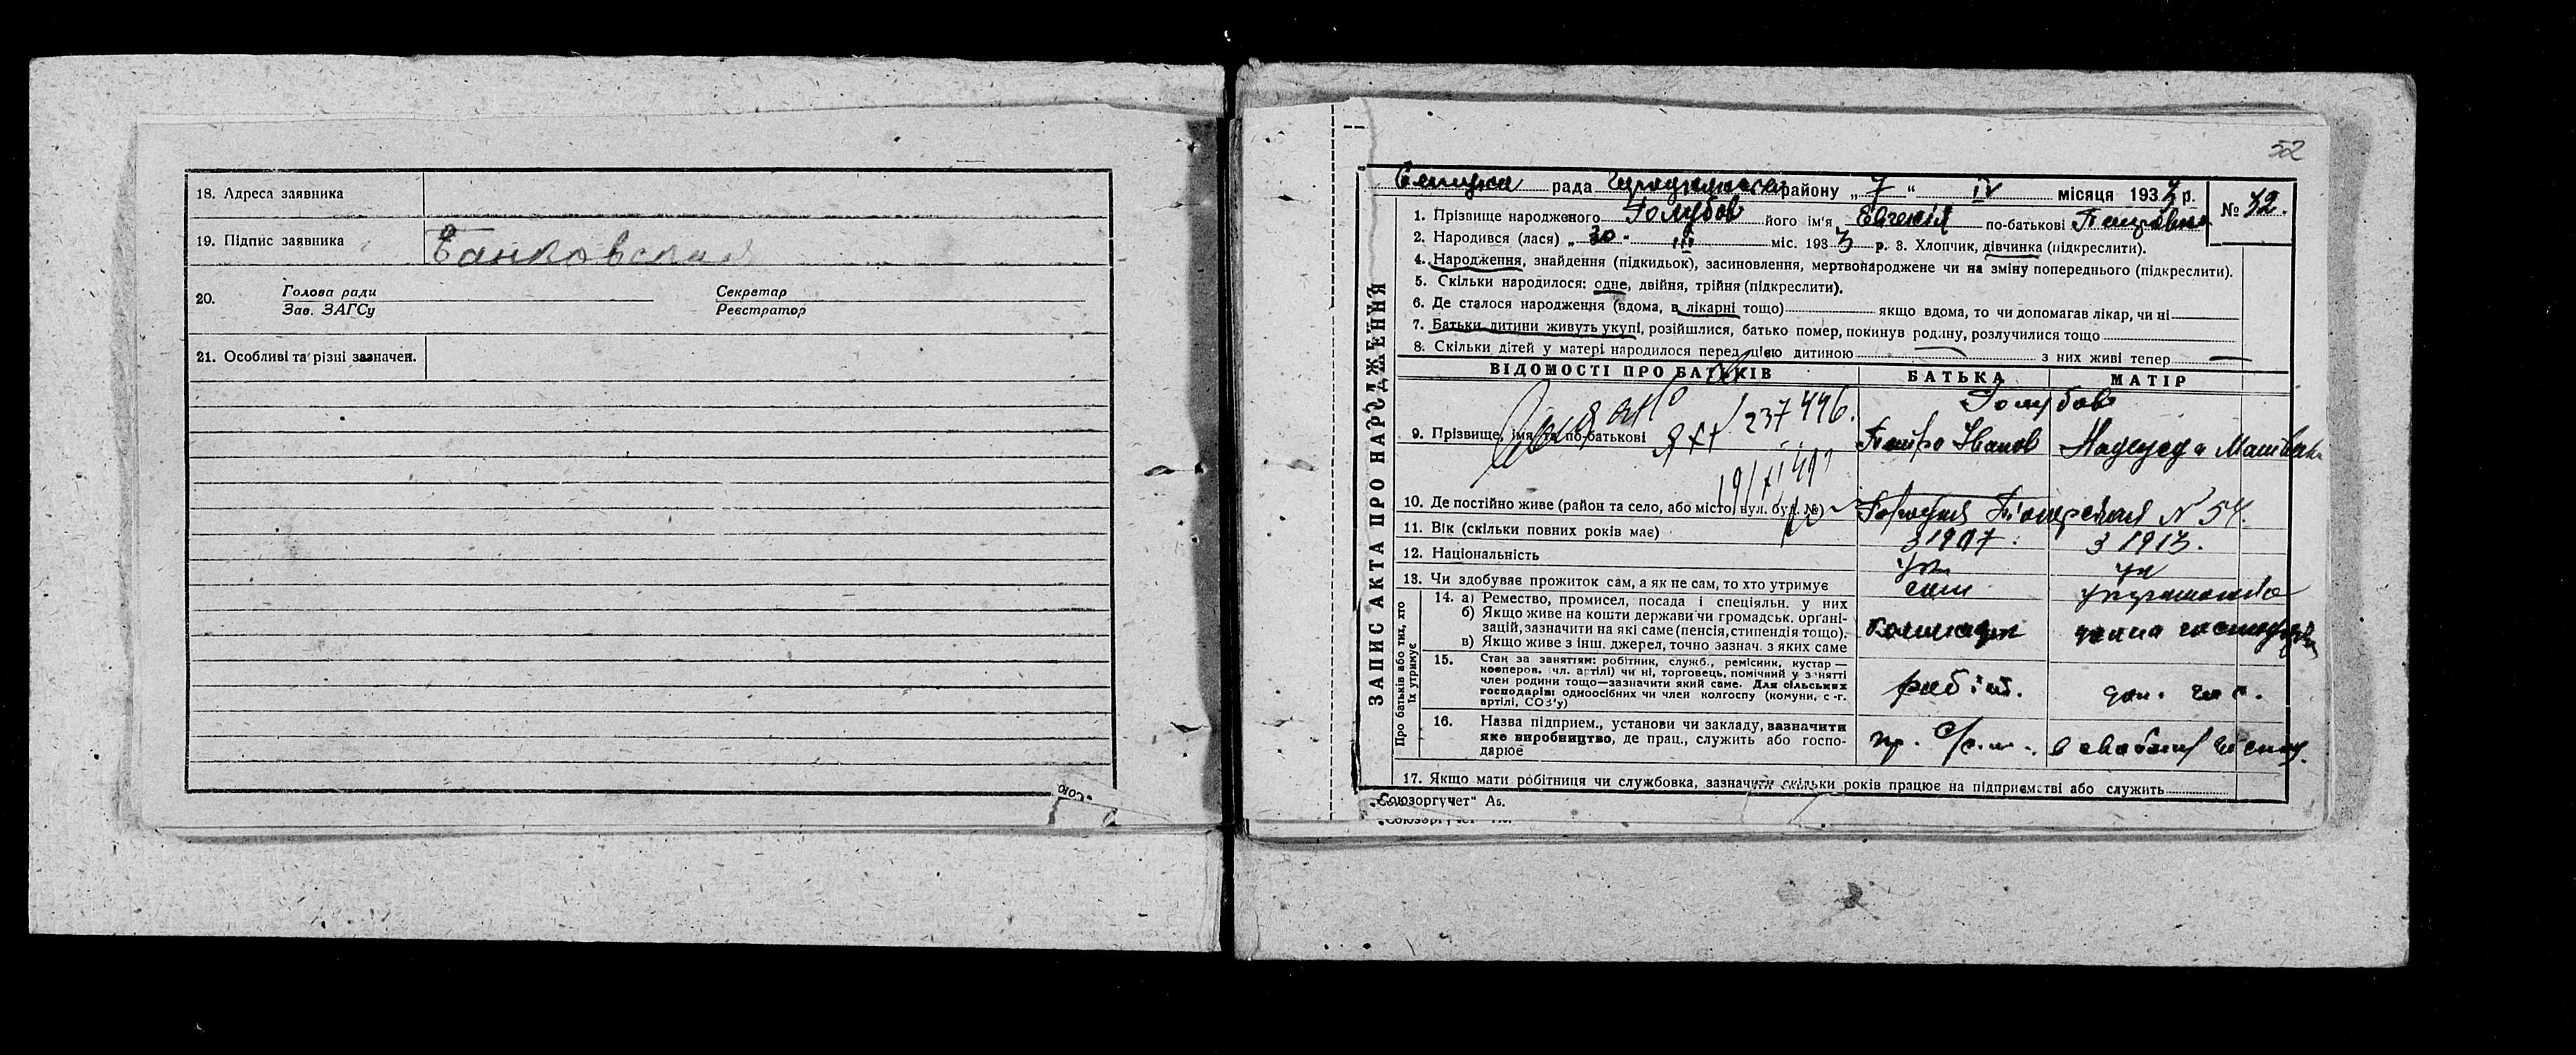 18. Адреса заявника
19. Підпис заявника
20. Голова ради Секретар
Зав. ЗАГСу Реєстратор
21. Особливі та різні зазначен.
52
рада району „7“ IV місяця 193 р. № 32.
ЗАПИС АКТА ПРО НАРОДЖЕННЯ
1. Прізвище народженого Голубов його ім'я Евгенія по-батькові Петровна
2. Народився (лася) „30“ III міс. 1933 р. 3. Хлопчик, дівчинка (підкреслити).
4. Народження, знайдення (підкидьок), засиновлення, мертвонароджене чи на зміну попереднього (підкреслити).
5. Скільки народилося: одне, двійня, трійня (підкреслити).
6. Де сталося народження (вдома, в лікарні тощо) якщо вдома, то чи допомагав лікар, чи ні
7. Батьки дитини живуть укупі, розійшлися, батько помер, покинув родину, розлучилися тощо
8. Скільки дітей у матері народилося перед цією дитиною — з них живі тепер —
ВІДОМОСТІ ПРО БАТЬКІВ БАТЬКА МАТІР
Голубов
237446.
9. Прізвище, імя та по-батькові Петро Іванов Надежда
10. Де постійно живе (район та село, або місто, вул. буд. №) N 54.
11. Вік (скільки повних років має) з 1907. з 1913.
12. Національність ук ук
13. Чи здобуває прожиток сам, а як не сам, то хто утримує сам
Про батьків або тих, хто їх утримує
14. а) Ремество, промисел, посада і спеціяльн. у них
б) Якщо живе на кошти держави чи громадськ. органі-
зацій, зазначити на які саме (пенсія, стипендія тощо).
в) Якщо живе з інш. джерел, точно зазнач. з яких саме
15. Стан за заняттям: робітник, служб., ремісник, кустар —
кооперов. (чл. артілі) чи ні, торговець, помічний у занятті
член родини тощо—зазначити який саме. Для сільських
господарів: одноосібних чи член колгоспу (комуни, с.-г.
артілі, СОЗ'у) робіт. дом. гос.
16. Назва підприєм., установи чи закладу, зазначити
яке виробництво, де прац., служить або госпо-
дарює
17. Якщо мати робітниця чи службовка, зазначити скільки років працює на підприємстві або служить
„Союзоргучет“ Аб.